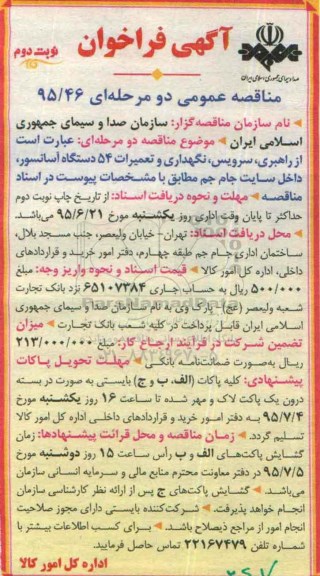 صدا و سیمای جمهوری اسلامی ایران
آگهی فراخوان
نوبت دوم
مناقصه عمومی دو مرحله‌ای ۹۵/۴۶
نام سازمان مناقصه‌گزار: سازمان صدا و سیمای جمهوری
اسلامی ایران موضوع مناقصه دو مرحله‌ای: عبارت است
از راهبری، سرویس، نگهداری و تعمیرات ۵۴ دستگاه آسانسور،
داخل سایت جام جم مطابق با مشخصات پیوست در اسناد
مناقصه مهلت و نحوه دریافت اسناد: از تاریخ چاپ نوبت دوم
حداکثر تا پایان وقت اداری روز یکشنبه مورخ ۹۵/۶/۲۱ می‌باشد.
محل دریافت اسناد: تهران - خیابان ولیعصر، جنب مسجد بلال،
ساختمان اداری جام جم طبقه چهارم، دفتر امور خرید و قراردادهای
داخلی، اداره کل امور کالا قیمت اسناد و نحوه واریز وجه: مبلغ
۵۰۰/۰۰۰ ریال به حساب جاری ۶۵۱۰۷۳۸۴ نزد بانک تجارت
شعبه ولیعصر (عج) - پارک وی به نام سازمان صدا و سیمای جمهوری
اسلامی ایران قابل پرداخت در کلیه شعب بانک تجارت میزان
تضمین شرکت در فرآیند ارجاع کار: مبلغ ۲۱۳/۰۰۰/۰۰۰
ریال به‌صورت ضمانت‌نامه بانکی مهلت تحویل پاکات
پیشنهادی: کلیه پاکات (الف، ب و ج) بایستی به صورت در بسته
درون یک پاکت لاک و مهر شده تا ساعت ۱۶ روز یکشنبه مورخ
۹۵/۷/۴ به دفتر امور خرید و قراردادهای داخلی اداره کل امور کالا
تسلیم گردد. زمان مناقصه و محل قرائت پیشنهادها: زمان
گشایش پاکت‌های الف و ب رأس ساعت ۱۵ روز دوشنبه مورخ
۹۵/۷/۵ در دفتر معاونت محترم منابع مالی و سرمایه انسانی سازمان
می‌باشد. گشایش پاکت‌های ج پس از ارائه نظر کارشناسی سازمان
انجام خواهد پذیرفت. شرکت‌کننده بایستی دارای مجوز صلاحیت
انجام امور از مراجع ذیصلاح باشد. برای کسب اطلاعات بیشتر با
شماره تلفن ۲۲۱۶۷۴۷۹ تماس حاصل فرمایید.
اداره کل امور کالا